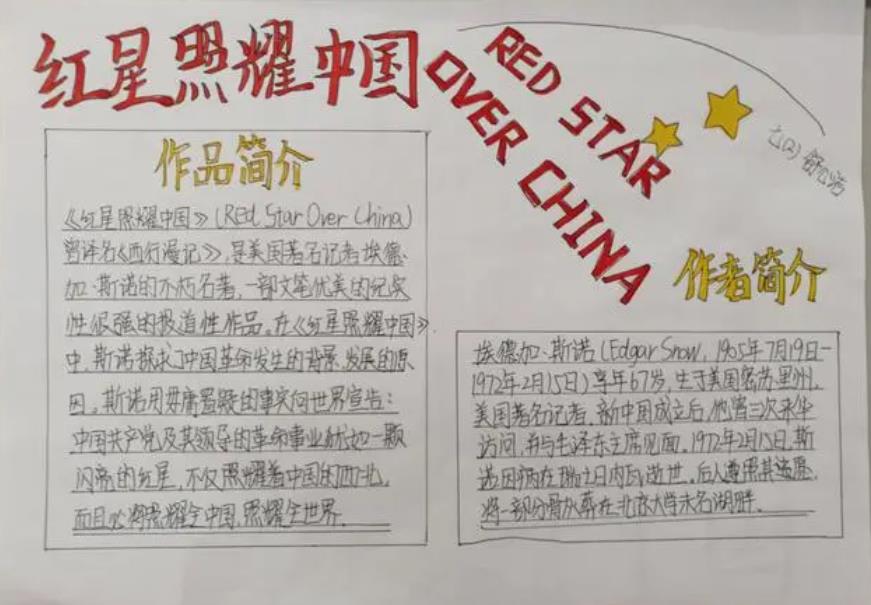 红星照耀中国
RED STAR
OVER CHINA
七(2) 舒心洁
作品简介
《红星照耀中国》(REd Star Over China)
曾译名《西行漫记》,是美国著名记者埃德·
加·斯诺的不朽名著,一部文笔优美的纪实
性很强的报道性作品。在《红星照耀中国》
中,斯诺探求了中国革命发生的背景、发展的原
因。斯诺用毋庸置疑的事实向世界宣告:
中国共产党及其领导的革命事业犹如一颗
闪亮的红星,不仅照耀着中国的西北,
而且必将照耀全中国,照耀全世界.
作者简介
埃德加·斯诺(Edgar Snow,1905年7月19日-
1972年2月15日)享年67岁,生于美国密苏里州,
美国著名记者,新中国成立后,他曾三次来华
访问,并与毛泽东主席见面。1972年2月15日,斯
诺因病在瑞士日内瓦逝世。后人遵照其遗愿,
将一部分骨灰葬在北京大学未名湖畔.